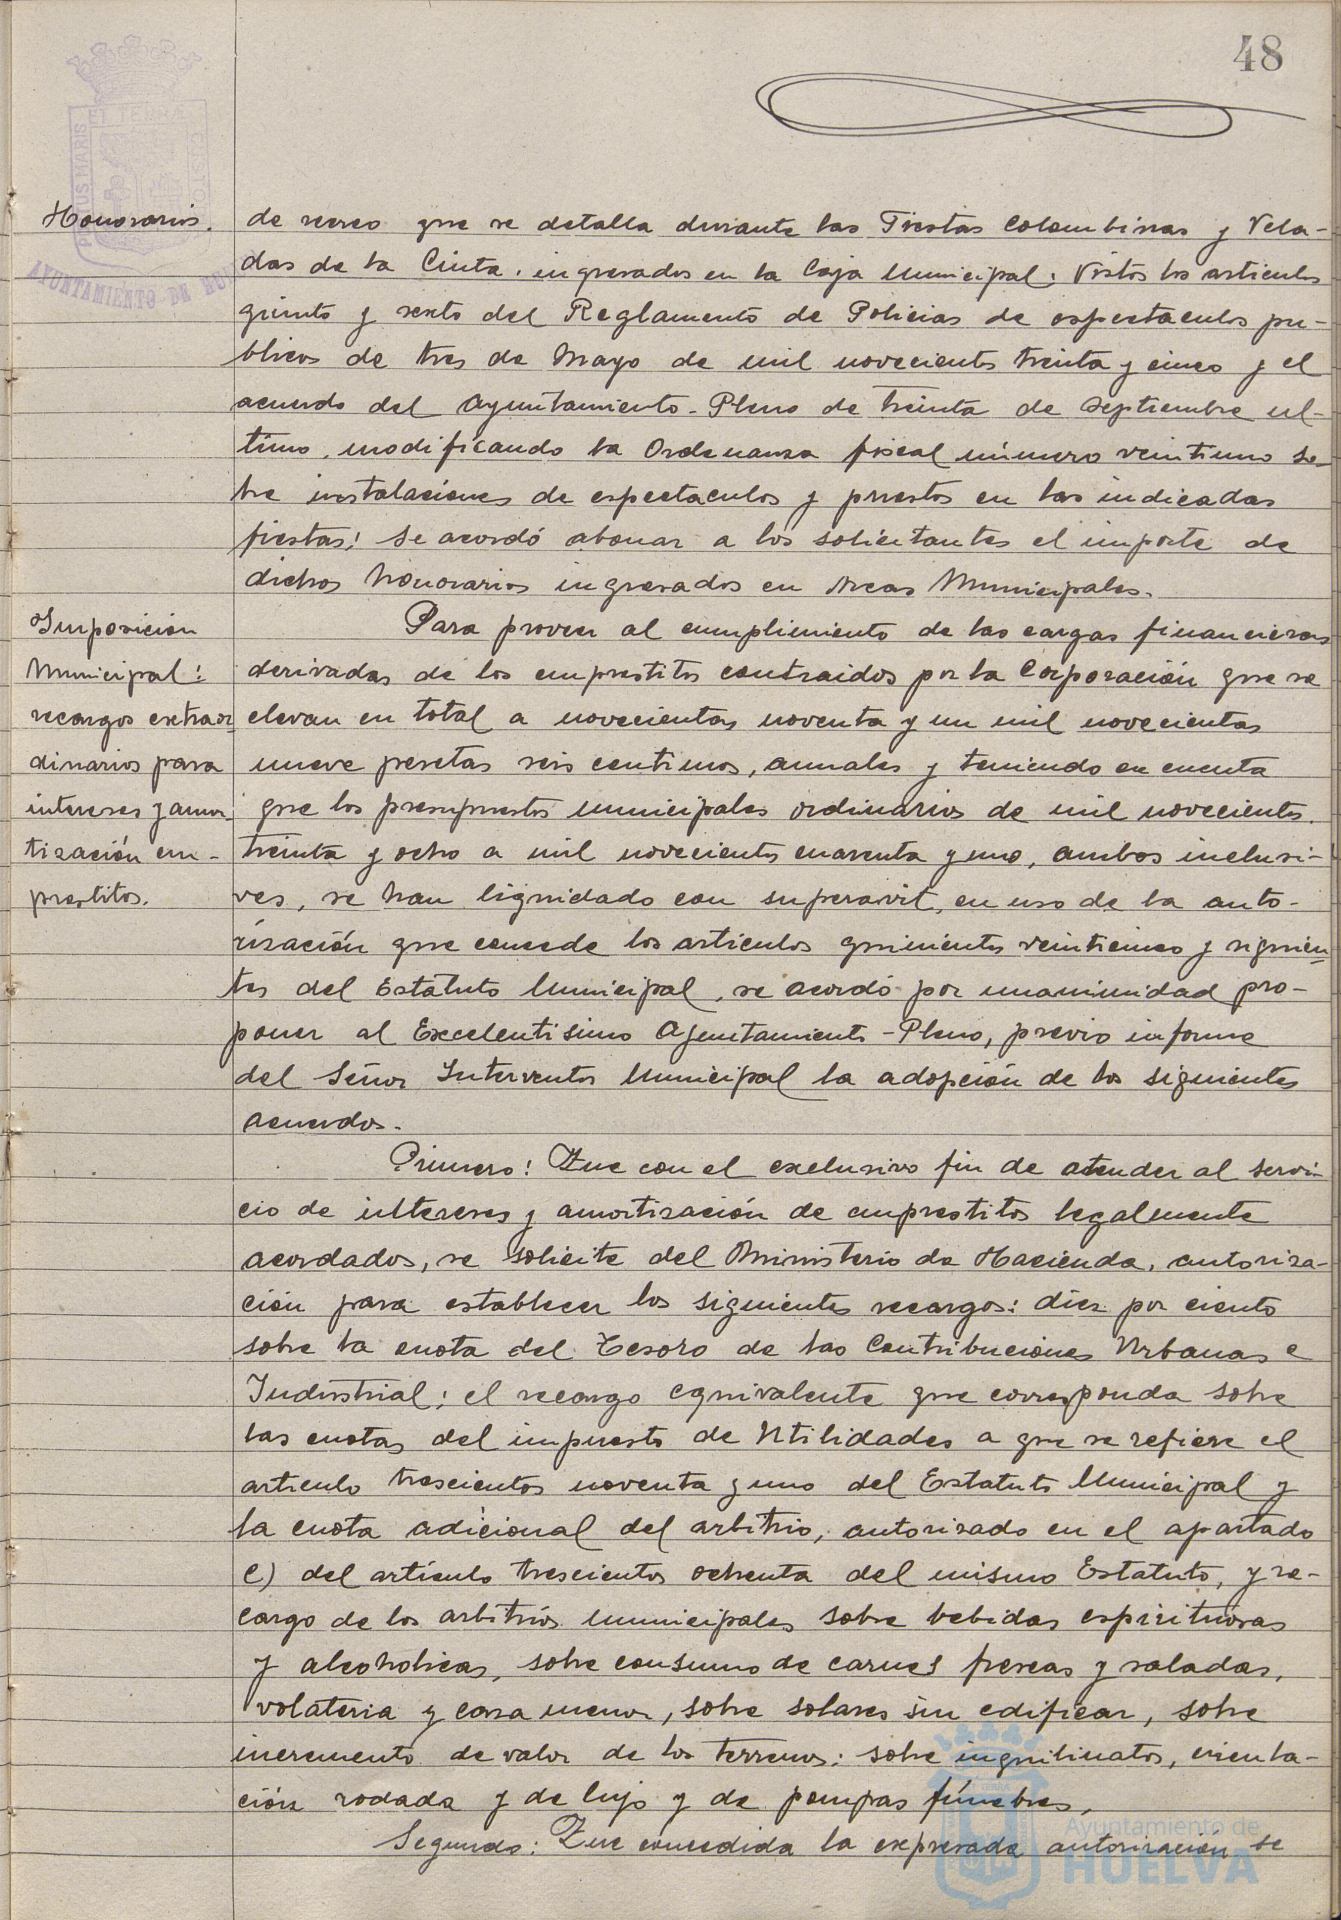 48
PORTUS MARIS ET TERRÆ CUSTODIA
AYUNTAMIENTO DE HUELVA
Honorarios.
de recreo que se detalla durante las Fiestas Colombinas y Vela-
das de la Cinta, ingresados en la Caja Municipal: Vistos los articulos
quinto y sexto del Reglamento de Policias de espectaculos pu-
blicos de tres de Mayo de mil novecientos treinta y cinco y el
acuerdo del Ayuntamiento-Pleno de treinta de Septiembre ul-
timo, modificando la Ordenanza fiscal número veintiuno so-
bre instalaciones de espectaculos y puestos en las indicadas
fiestas; Se acordó abonar a los solicitantes el importe de
dichos honorarios ingresados en Arcas Municipales.
Imposicion
Municipal:
recargos extraor-
dinarios para
intereses y amor-
tización em-
prestitos.
Para proveer al cumplimiento de las cargas financieras
derivadas de los emprestitos contraidos por la Corporación que se
elevan en total a novecientas noventa y un mil novecientas
nueve pesetas seis centimos, anuales y teniendo en cuenta
que los presupuestos municipales ordinarios de mil novecientos
treinta y ocho a mil novecientos cuarenta y uno, ambos inclusi-
ves, se han liquidado con superavit, en uso de la auto-
rización que concede los articulos quinientos veinticinco y siguien-
tes del Estatuto Municipal, se acordó por unanimidad pro-
poner al Excelentisimo Ayuntamiento-Pleno, previo informe
del Señor Interventor Municipal la adopción de los siguientes
acuerdos.
Primero: Que con el exclusivo fin de atender al servi-
cio de intereses y amortización de emprestitos legalmente
acordados, se solicite del Ministerio de Hacienda, autoriza-
ción para establecer los siguientes recargos: diez por ciento
sobre la cuota del Tesoro de las Contribuciones Urbanas e
Industrial; el recargo equivalente que corresponda sobre
las cuotas del impuesto de Utilidades a que se refiere el
articulo trescientos noventa y uno del Estatuto Municipal y
la cuota adicional del arbitrio, autorizado en el apartado
C) del artículo trescientos ochenta del mismo Estatuto, y re-
cargo de los arbitrios municipales sobre bebidas espirituosas
y alcoholicas, sobre consumo de carnes frescas y saladas,
volateria y caza menor, sobre solares sin edificar, sobre
incremento de valor de los terrenos: sobre inquilinatos, circula-
ción rodada y de lujo y de pompas fúnebres,
Segundo: Que concedida la expresada autorización se
Ayuntamiento de
HUELVA